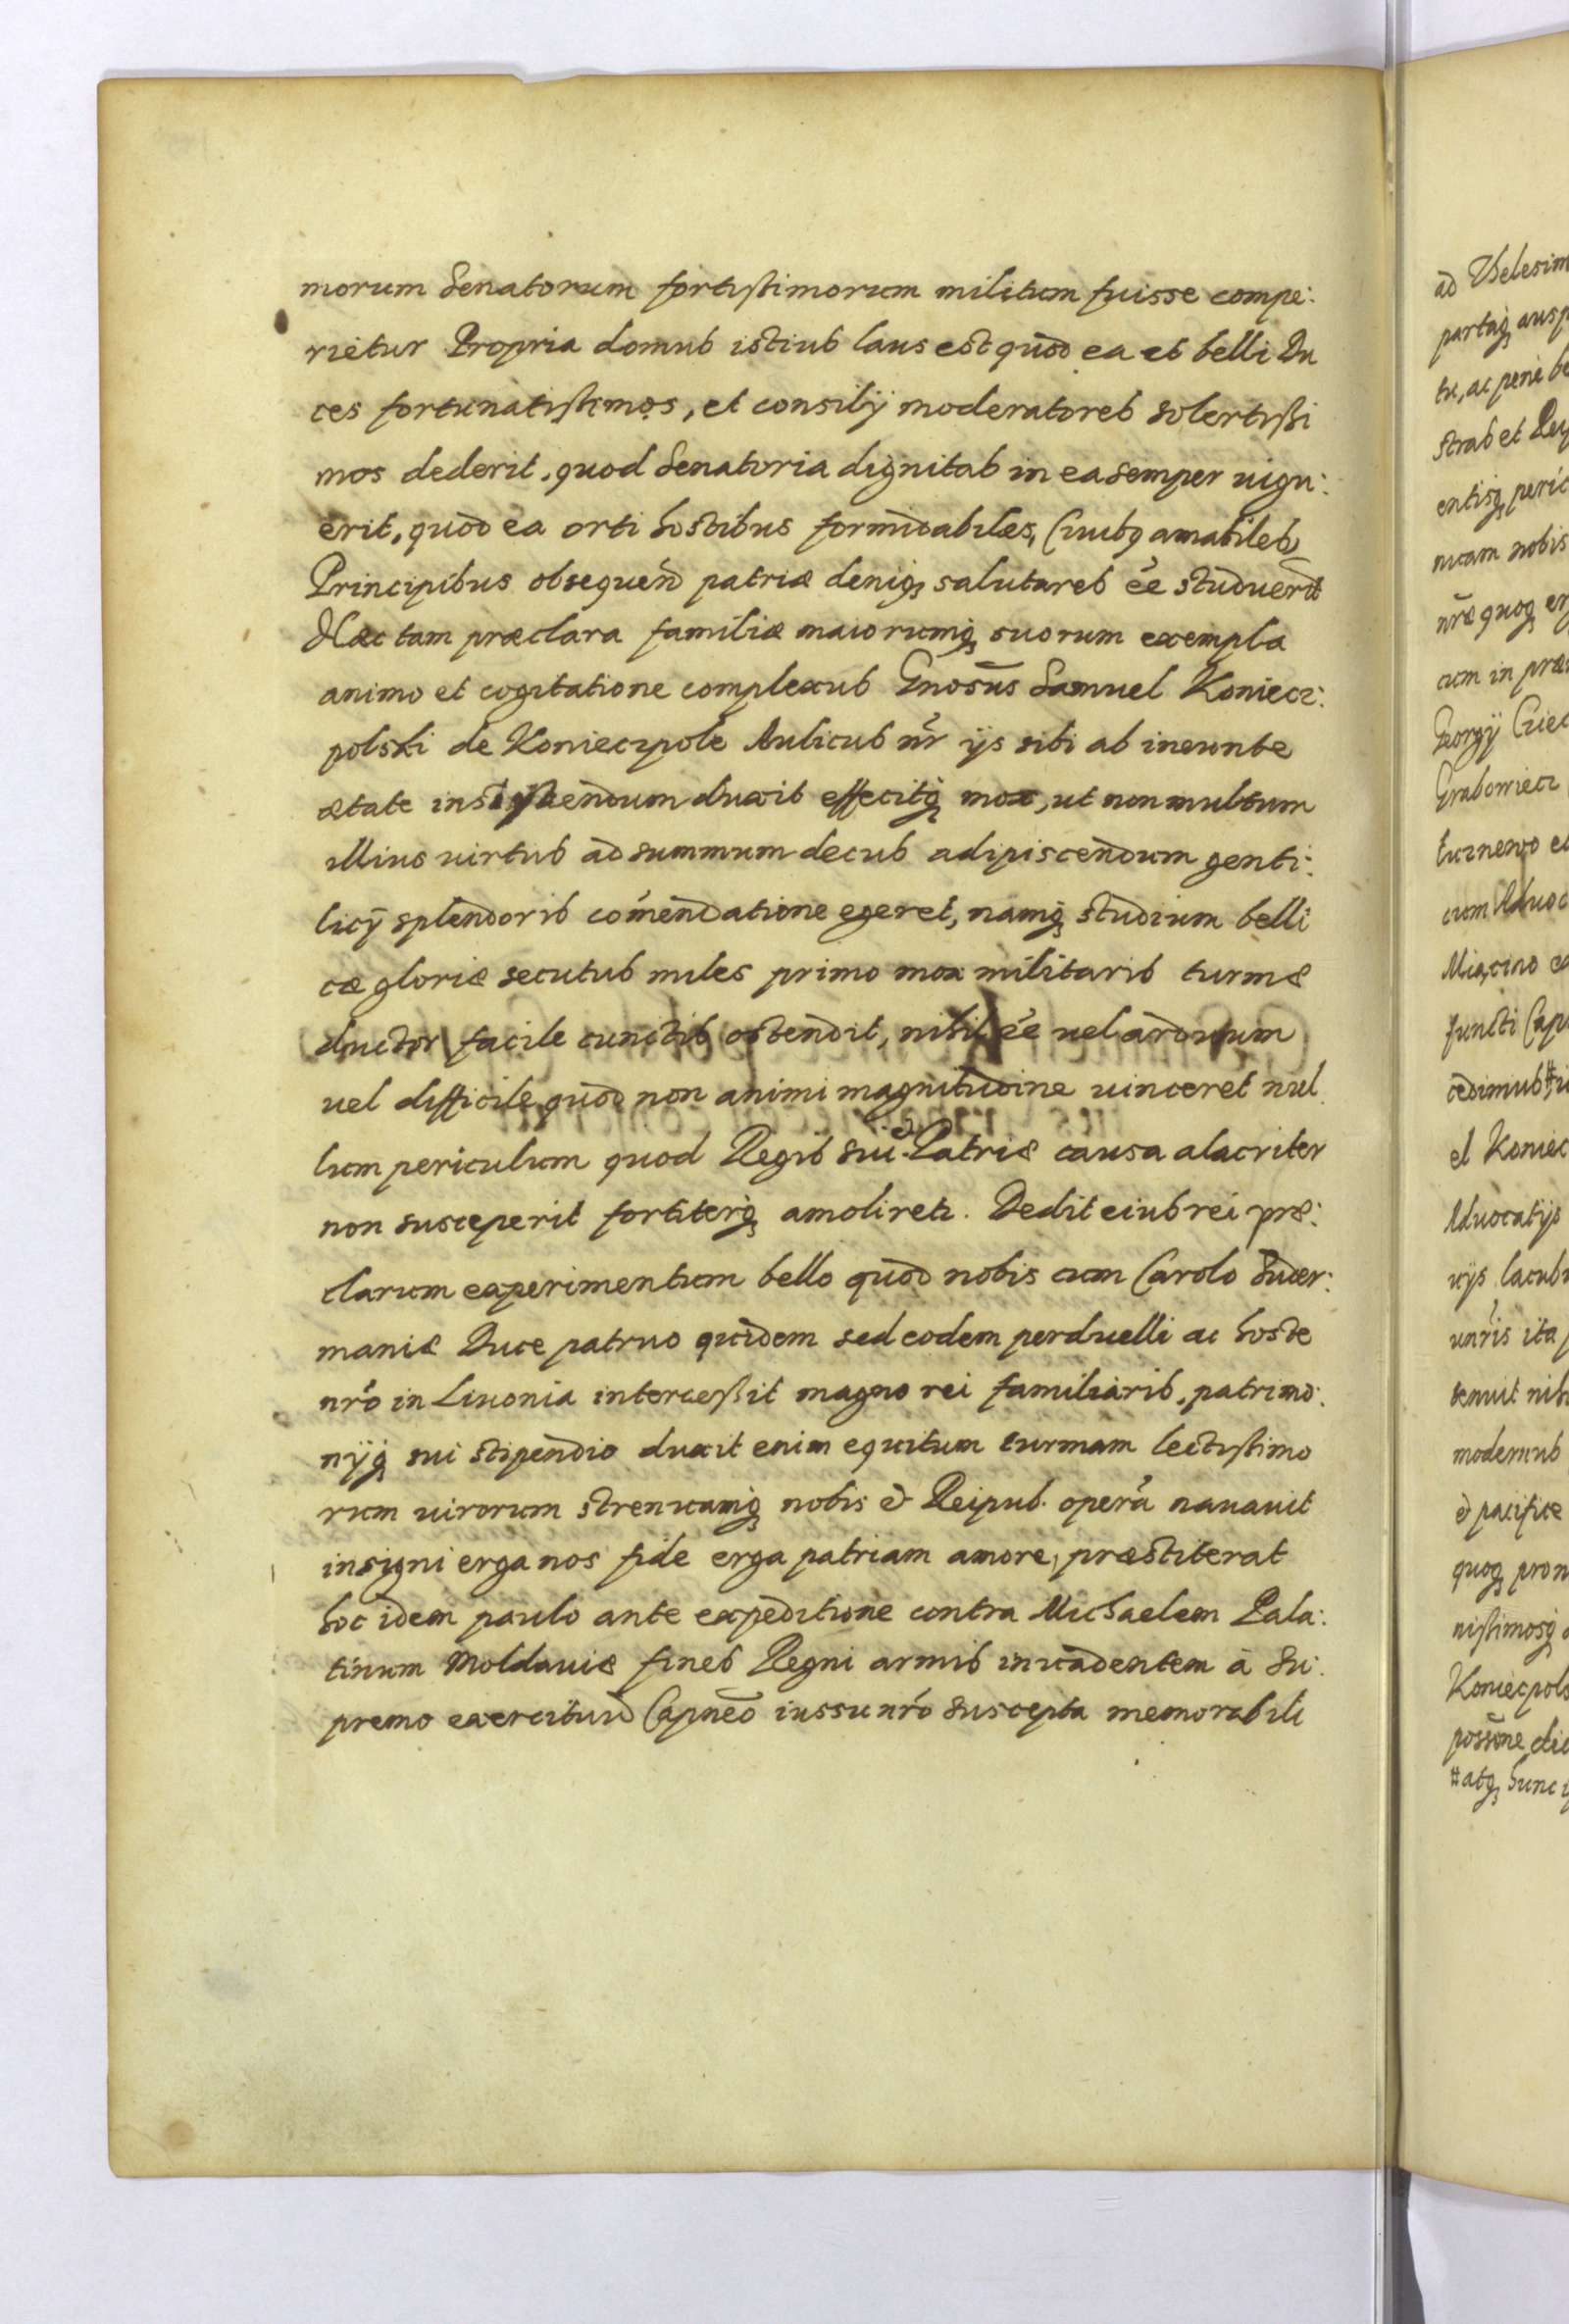 morum Senatorum fortissimorum militum fuisse compe:
rietur Propria domus istius laus est quod ea et belli Du
ces fortunatissimos, et consilij moderatores solertissi
mos dederit, quod Senatoria dignitas in ea semper uigu:
erit, quod ea orti hostibus formidabiles, Ciuibq amabiles
Principibus obsequen patriæ deniq salutares ẽe studuerīt
Hæc tam præclara familiæ maiorumq suorum exempla
animo et cogitatione complexus Gnosus Samuel Koniecz:
polski de Konieczpole Aulicus nr̃ ijs sibi ab ineunte
ætate insistendum duxit effecitq mox, ut non multum
illius uirtus ad summum decus adipiscendum genti:
licij splendoris com̃endatione egeret, namq studium belli
cæ gloriæ secutus miles primo mox militaris turmæ
ductor facile cunctis ostendit, nihil ẽe uel arduum
uel difficile quod non animi magnitudine uinceret nul
lum periculum quod Regis sui & Patriæ causa alacriter
non susceperit fortiterq amoliretr. Dedit eius rei præ:
clarum experimentum bello quod nobis cum Carolo Suder:
maniæ Duce patruo quidem sed eodem perduelli ac hoste
nr̃o in Liuonia intercessit magno rei familiaris, patrimo:
nijq sui stipendio duxit enim equitum turmam lectissimo
rum uirorum strenuamq nobis & Reipub. operã nauauit
insigni erga nos fide erga patriam amore, præstiterat
hoc idem paulo ante expeditione contra Michaelem Pala:
tinum Moldauiæ fines Regni armis inuadentem à Su:
premo exercituũ Capneo iussu nr̃o suscepta memorabili
ad
partaq
tu, ac pene
stras et
entisq
nicam nobis
nr̃æ quoq
cum in
Georgij
Grabowiecz
cum
functi
cedimus
el Koniec
Aduocatijs
uijs lacubu
ita
tenuit
modernus
& pacifice
quoq
nissimosq
Koniecpols
possone
atq hunc